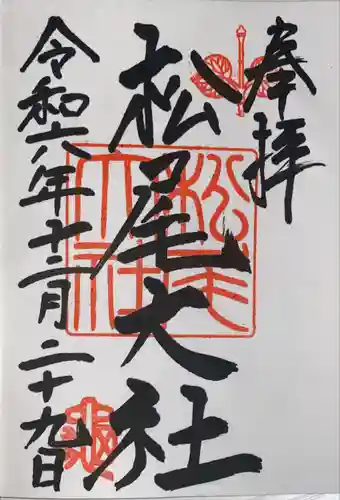 奉拝
松尾大社
松尾大社
令和六年十二月二十九日